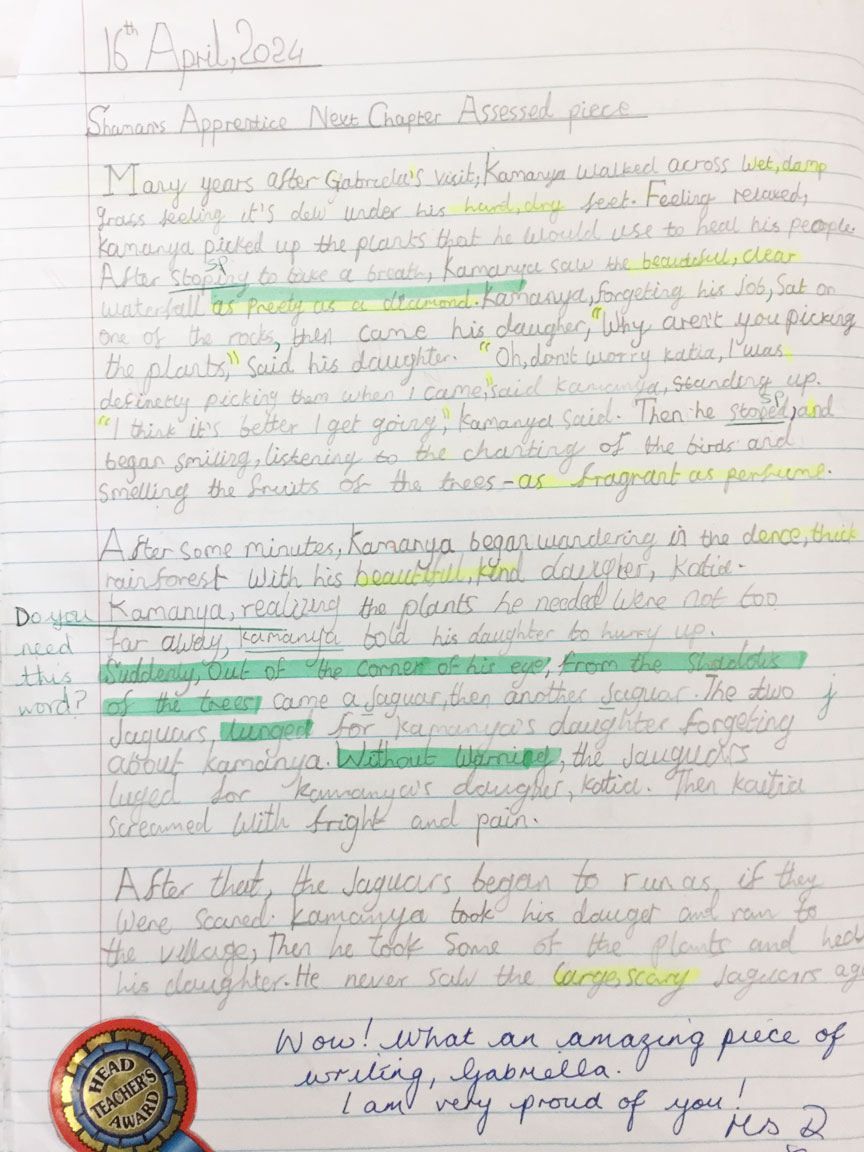 16th April, 2024
Shaman's Apprentice Next Chapter Assessed piece
Many years after Gabriela's visit, Kamanya walked across wet, damp
grass feeling it's dew under his hard, dry feet. Feeling relaxed,
Kamanya picked up the plants that he would use to heal his people
sp
After stoping to take a breath, Kamanya saw the beautiful, clear
waterfall as preety as a diamond. Kamanya, forgeting his job, Sat on
one of the rocks, then came his daugher, "Why aren't you picking
the plants," said his daughter. "Oh, don't worry Katia, I was
definetly picking them when I came," said Kamanya, standing up.
sp
"I think it's better I get going," Kamanya said. Then he stoped, and
began smiling, listening to the chanting of the birds and
smelling the fruits of the trees - as fragrant as perfume.
After some minutes, Kamanya began wandering in the dence, thick
rainforest with his beautiful, kind daughter, Katia.
Do you need this word?
Kamanya, realizing the plants he needed were not too
far away, Kamanya told his daughter to hurry up.
Suddenly, out of the corner of his eye, from the shadows
of the trees, came a Jaguar, then another Jaguar. The two
j
Jaguars, lunged for Kamanya's daughter forgeting
about Kamanya. Without warning, the Jauguars
luged for Kamanya's daugher, Katia. Then Kaitia
screamed with fright and pain.
After that, the Jaguars began to run as, if they
were scared. Kamanya took his dauget and ran to
the village, Then he took some of the plants and
his daughter. He never saw the large, scary Jaguars
HEAD TEACHER'S AWARD
Wow! What an amazing piece of
writing, Gabriella.
I am very proud of you!